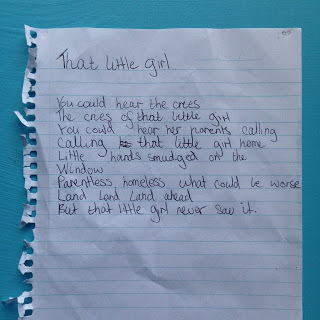 That little girl
You could hear the cries
The cries of that little girl
You could hear her parents calling
Calling that little girl home
Little hands smudged on the
Window
Parentless homeless what could be worse
Land Land Land ahead
But that little girl never saw it.